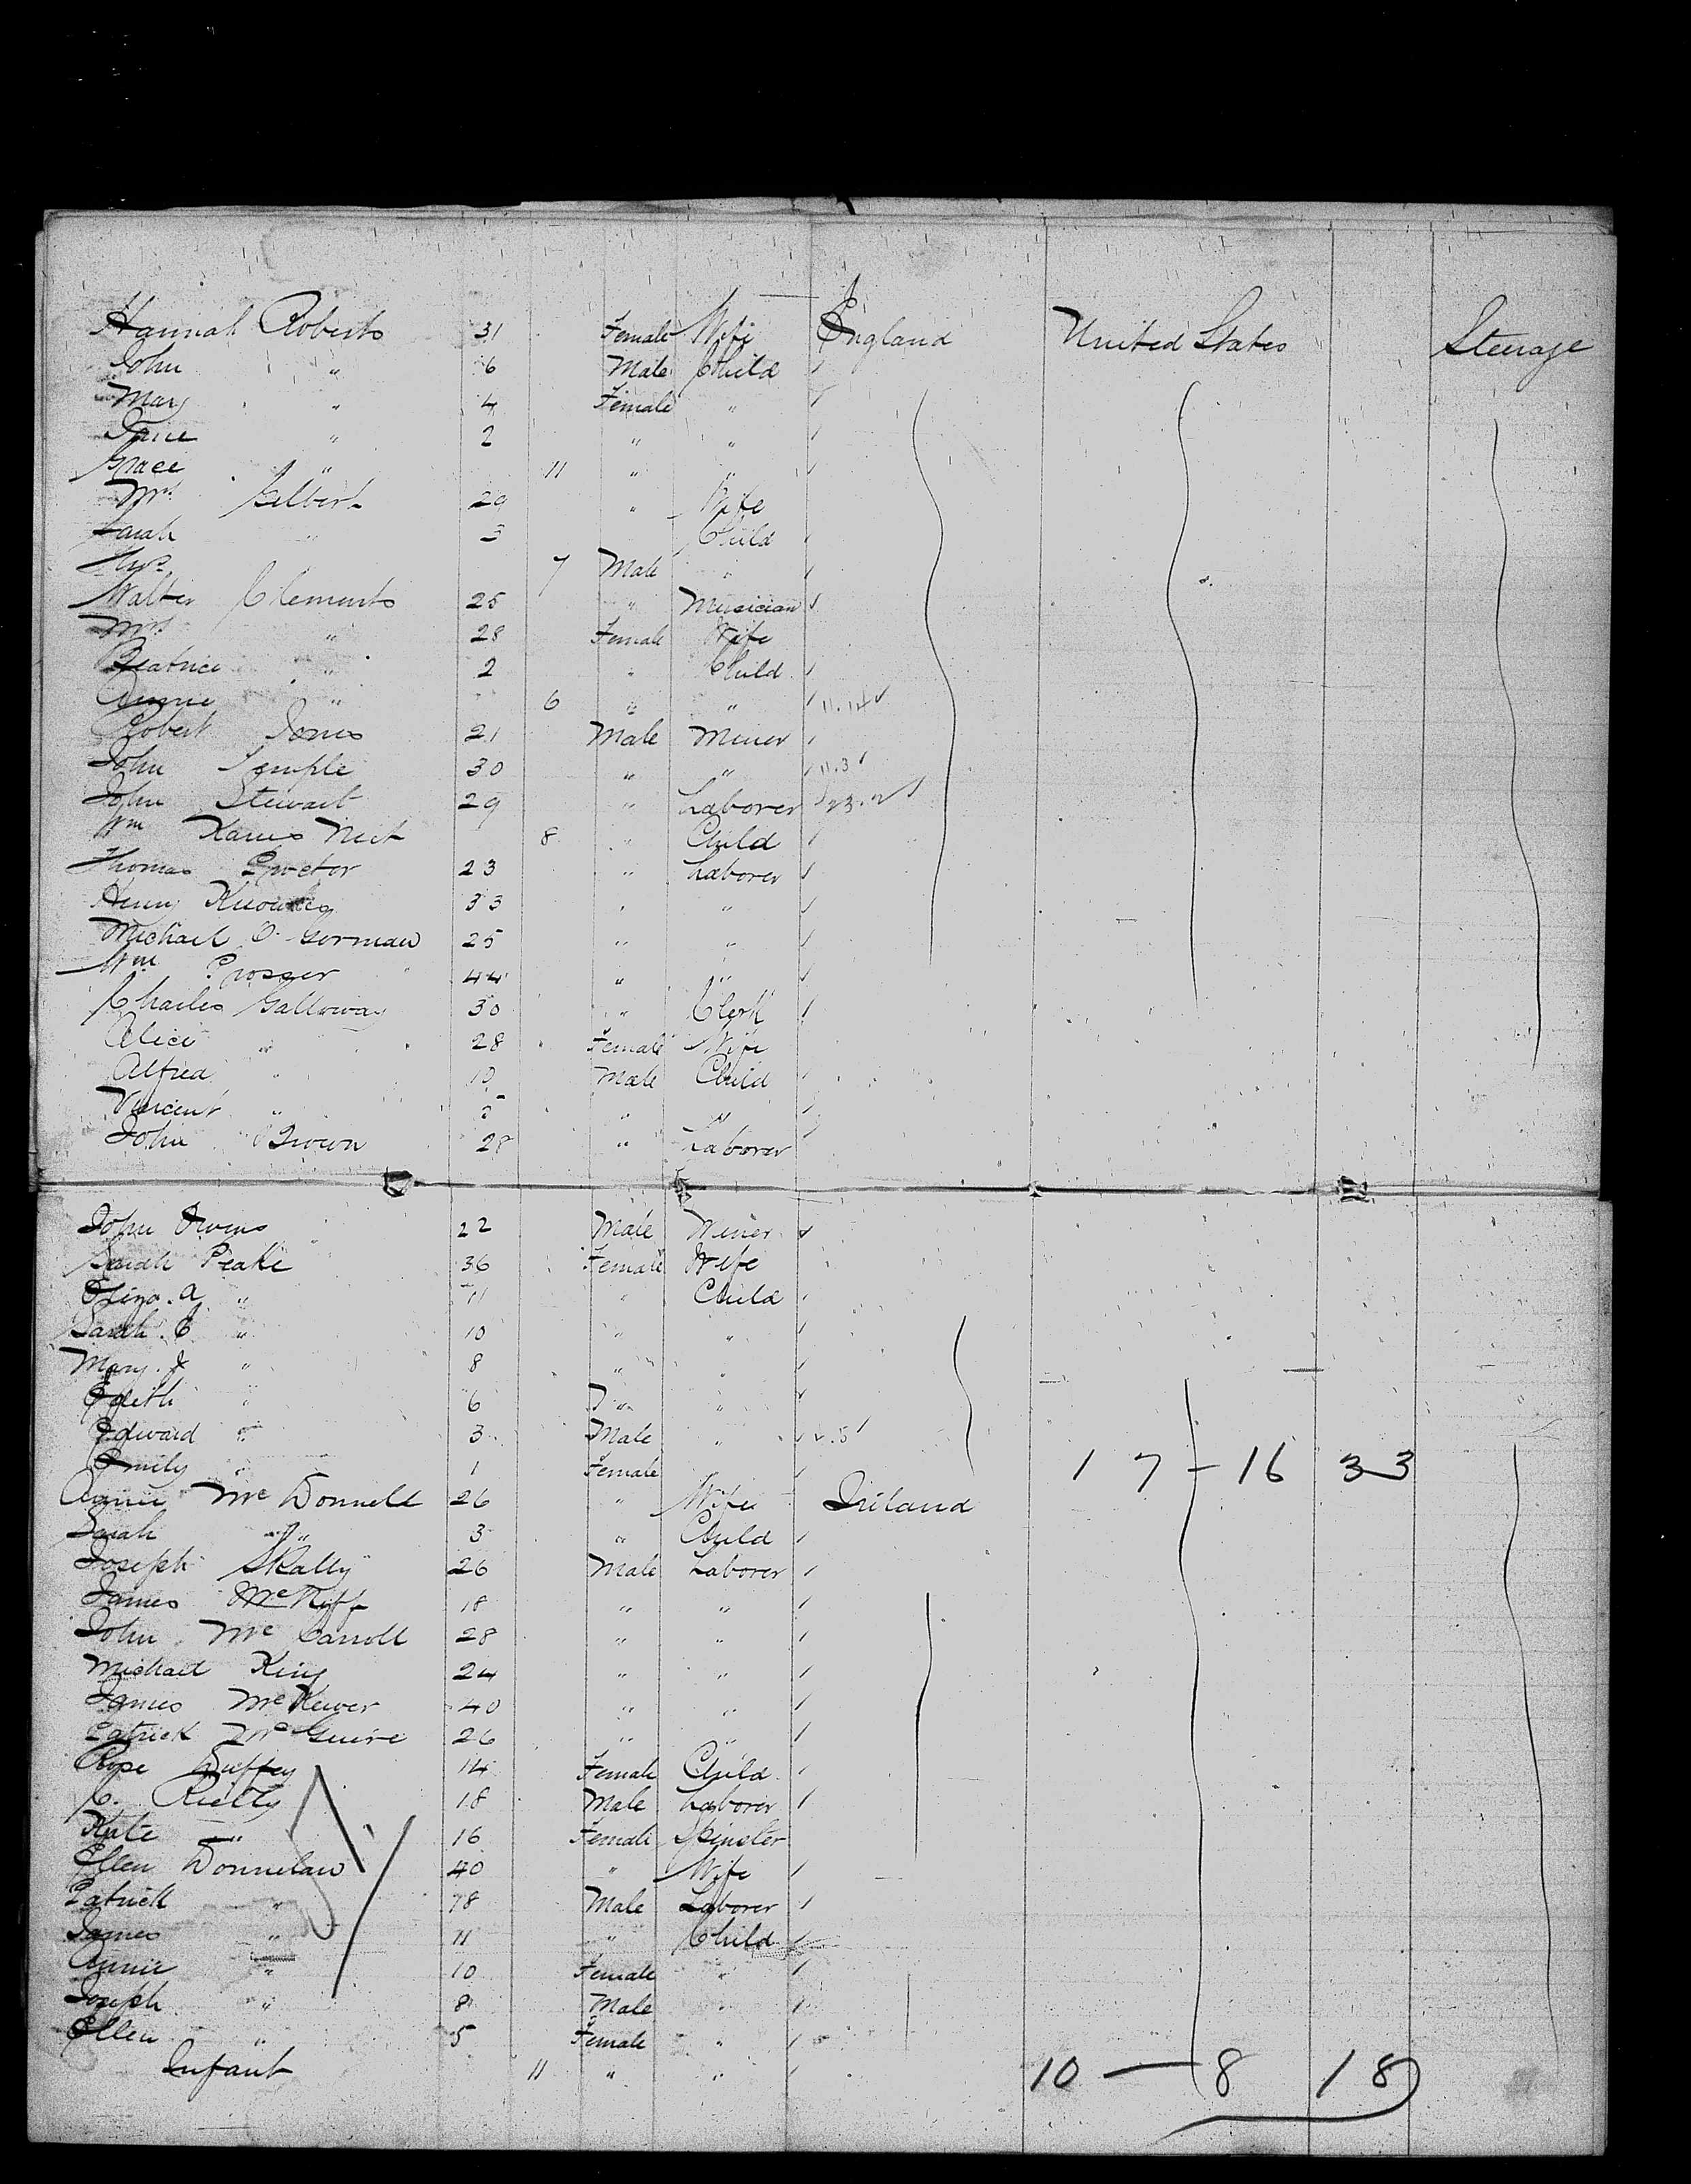 Hannah Roberts 31 Female Wife England United States Steerage
John " 6 Male Child
Mary " 4 Female "
Jane " 2 " "
Grace " 11 " "
Mrs Gilbert 29 " Wife
Sarah " 3 Child
7 Male "
Walter Clements 25 " Musician
Mrs " 28 Female Wife
Beatrice " 2 " Child
Annie " 6 " " 11.14
Robert Jones 21 Male Miner
John Temple 30 " " 11.3
John Stewart 29 " Laborer 23.2
Wm 8 " Child
Thomas Proctor 23 " Laborer
Henry Knowles 33 " "
Michael O'Gorman 25 " "
Wm Prosser 44 " "
Charles Galloway 30 " Clerk
Alice " 28 Female Wife
Alfred " 10 Male Child
Vincent " 5 " "
John Brown 28 " Laborer
John Owens 22 Male Miner
Sarah Peake 36 Female Wife
Eliza. A " 11 " Child
Sarah. E " 10 " "
Mary. J " 8 " "
Edith " 6 " "
Edward " 3 Male "
Emily " 1 Female 17-16 33
Annie McDonnell 26 " Wife Ireland
Sarah " 3 " Child
Joseph Skally 26 Male Laborer
James McKiff 18 " "
John McCarroll 28 " "
Michael King 24 " "
James McKever 40 " "
Patrick McGuire 26 " "
Rose Duffey 14 Female Child
C. Rielly 18 Male Laborer
Kate " 16 Female Spinster
Ellen Donnelan 40 " Wife
Patrick " 78 Male Laborer
James " 11 " Child
Annie " 10 Female "
Joseph " 8 Male "
Ellen " 5 Female "
Infant 11 " " 10 — 8 18